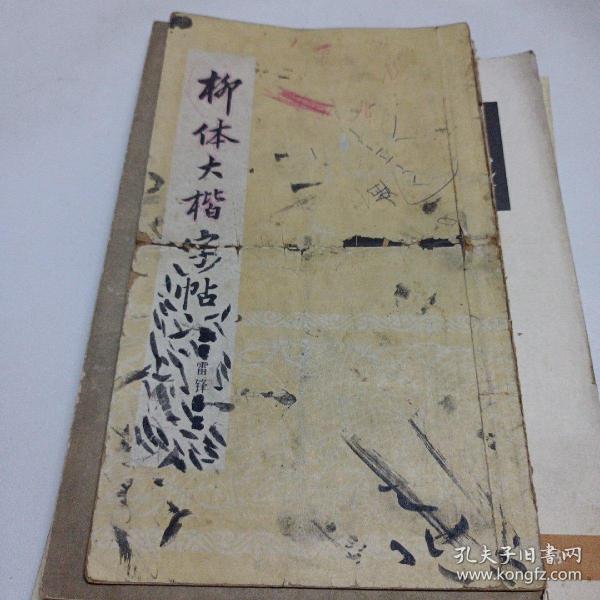 柳体大楷字帖
雷锋
孔夫子旧书网
www.kongfz.com